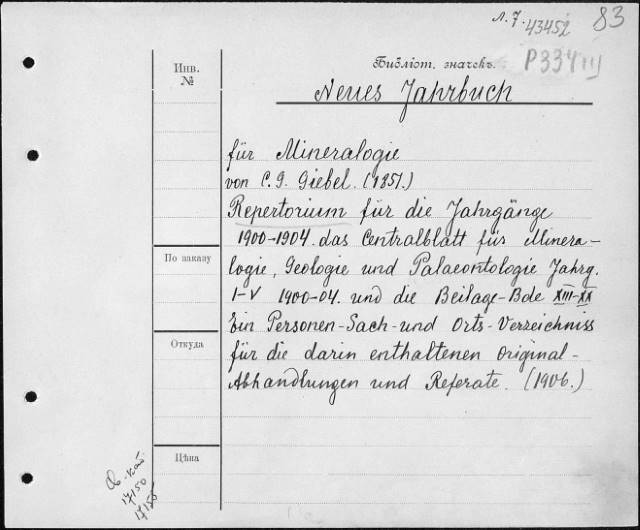 л. 7. 43452 83
Инв.
№
Библіот. значекъ.
P334III
Neues Jahrbuch
für Mineralogie
von C. G. Giebel. (1851.)
Repertorium für die Jahrgänge
1900-1904. das Centralblatt für Minera-
logie, Geologie und Palaeontologie Jahrg.
I-V 1900-04. und die Beilage-Bde XIII-XX
Ein Personen-Sach-und Orts-Verzeichniss
für die darin enthaltenen Original-
Abhandlungen und Referate. (1906.)
По заказу
Откуда
Цѣна
17150
17155